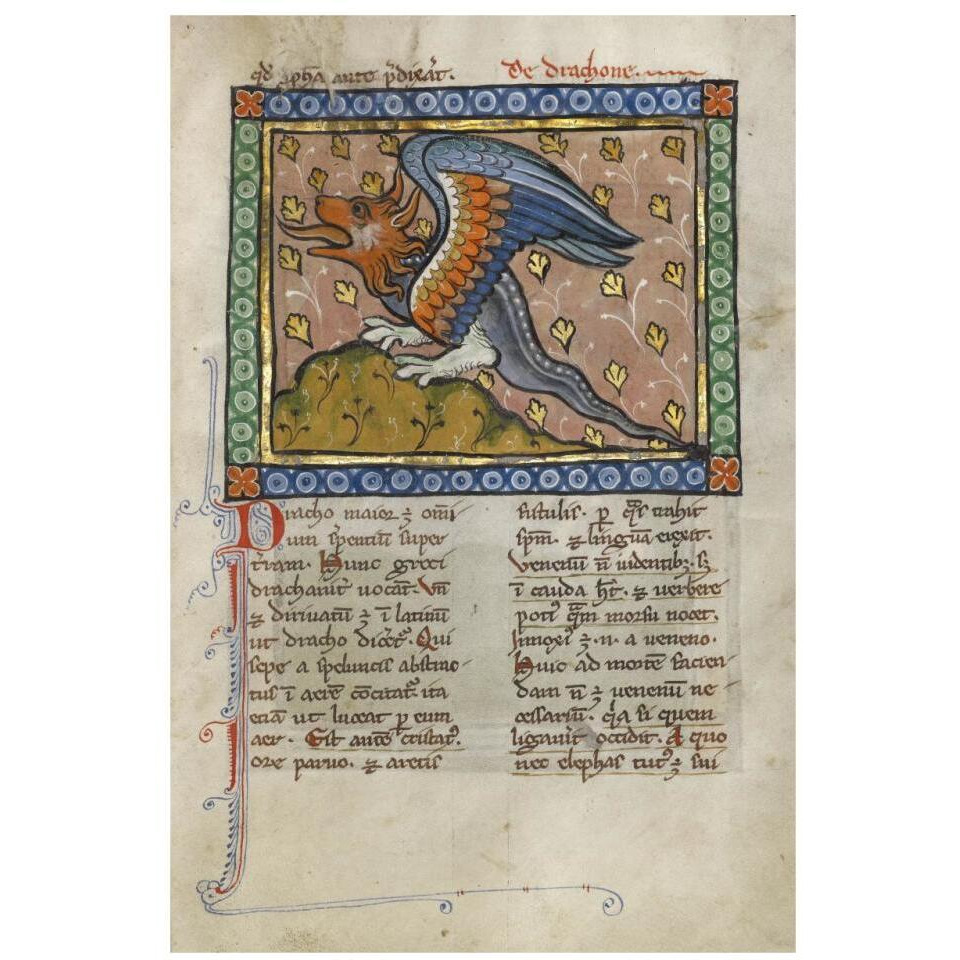 qd ꝓpha ante p̃dixãt.
De drachone.
Dracho maior ⁊ omi
um s̃pentiũ super
t̃ram. Hunc greci
drachanir̃ uocãt. Vñ
⁊ diriuatũ ⁊ ĩ latinũ
ut dracho dicẽt᷑. Qui
sepe a speluncis abstrac
tus ĩ aerẽ cõcitat᷑. ita
etiã ut luceat ꝑ eum
aer. Est autẽ cristat᷒.
ore paruo. ⁊ artis
fistulis. ꝑ q̃s trahit
spm̃. ⁊ linguã erexit.
Venenũ ñ ĩ dentib;. s;
ĩ cauda h̃t. ⁊ uerbere
poti᷒ q̃m morsu nocet.
Innoxi᷒ ⁊ .n. a ueneno.
Huic ad mortẽ facien
dam ñ ⁊ uenenũ ne
cessariũ. q̃a si quem
ligauit occidit. A quo
nec elephas tut᷒ ⁊ sui